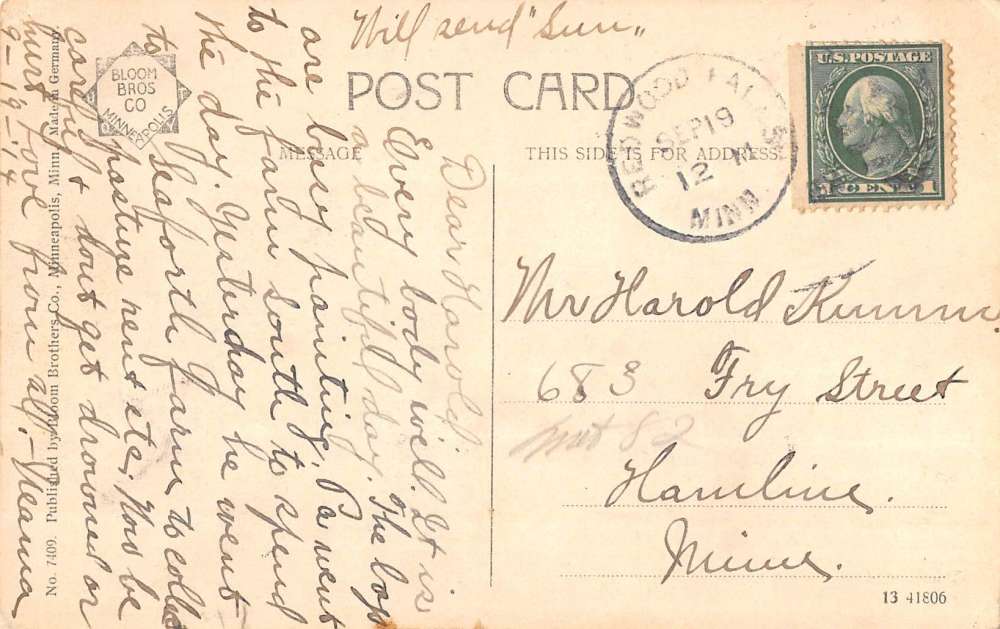 Will send "Sun"
POST CARD
BLOOM
BROS
CO
MINNEAPOLIS
MESSAGE
THIS SIDE IS FOR ADDRESS
REDWOOD FALLS
SEP 19
12 M
MINN.
U.S. POSTAGE
1 CENT 1
Dear Harold,
Every body well. It is
a beautiful day. The boys
are busy painting. Pa went
to the farm south to spend
the day. Yesterday he went
to Seaforth farm to collect
pasture rent etc. Now be
careful & dont get drowned or
hurt. Love from all.-
9-19-14
Mr Harold Kumm
683 Fry Street
82
Hamline.
Minn.
No. 7409. Published by Bloom Brothers Co., Minneapolis, Minn. Made in Germany
13 41806